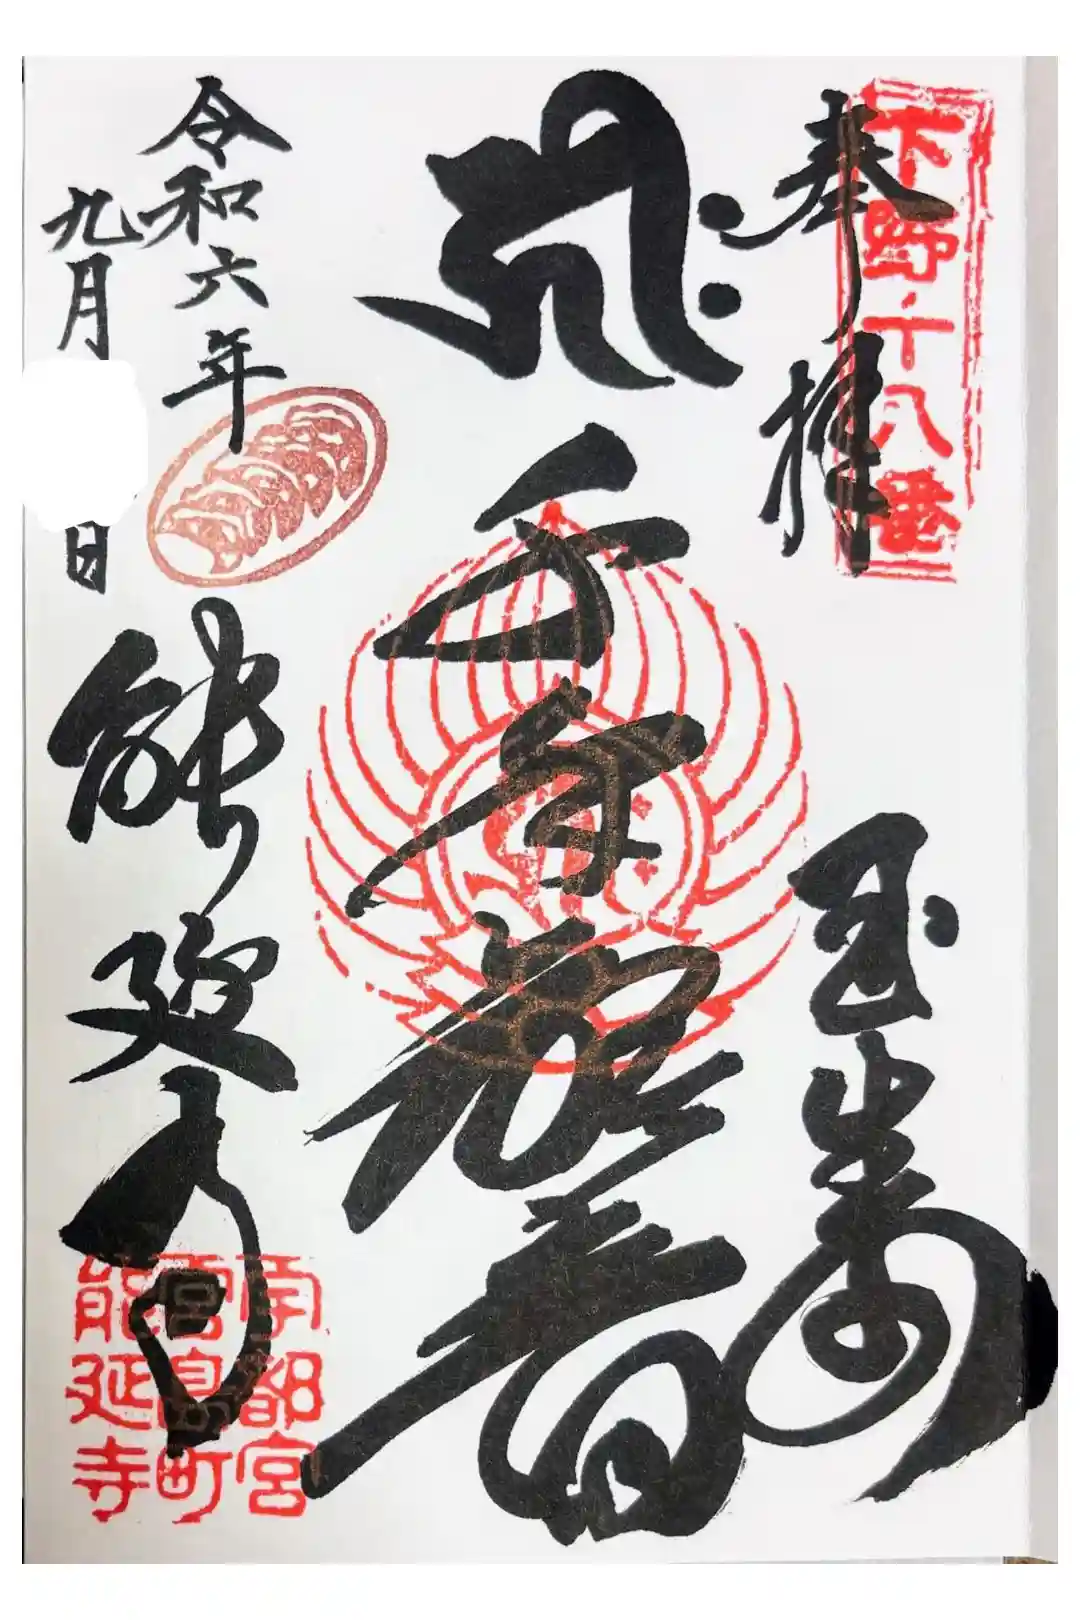 下野十八番
奉拝
千手観音
令和六年
九月 日
能延寺
宇都宮
宮島町
能延寺